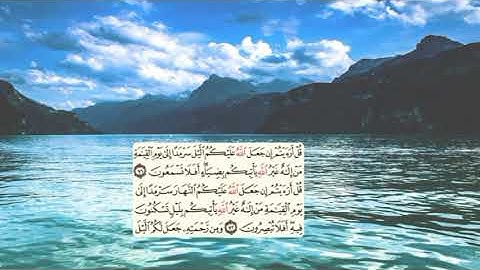 قُلْ أَرَءَيْتُمْ إِن جَعَلَ ٱللَّهُ عَلَيْكُمُ ٱلَّيْلَ سَرْمَدًا إِلَىٰ يَوْمِ ٱلْقِيَٰمَةِ
مَنْ إِلَٰهٌ غَيْرُ ٱللَّهِ يَأْتِيكُم بِضِيَآءٍ أَفَلَا تَسْمَعُونَ ٧١
قُلْ أَرَءَيْتُمْ إِن جَعَلَ ٱللَّهُ عَلَيْكُمُ ٱلنَّهَارَ سَرْمَدًا إِلَىٰ
يَوْمِ ٱلْقِيَٰمَةِ مَنْ إِلَٰهٌ غَيْرُ ٱللَّهِ يَأْتِيكُم بِلَيْلٍ تَسْكُنُونَ
فِيهِ أَفَلَا تُبْصِرُونَ ٧٢ وَمِن رَّحْمَتِهِۦ جَعَلَ لَكُمُ ٱلَّيْلَ